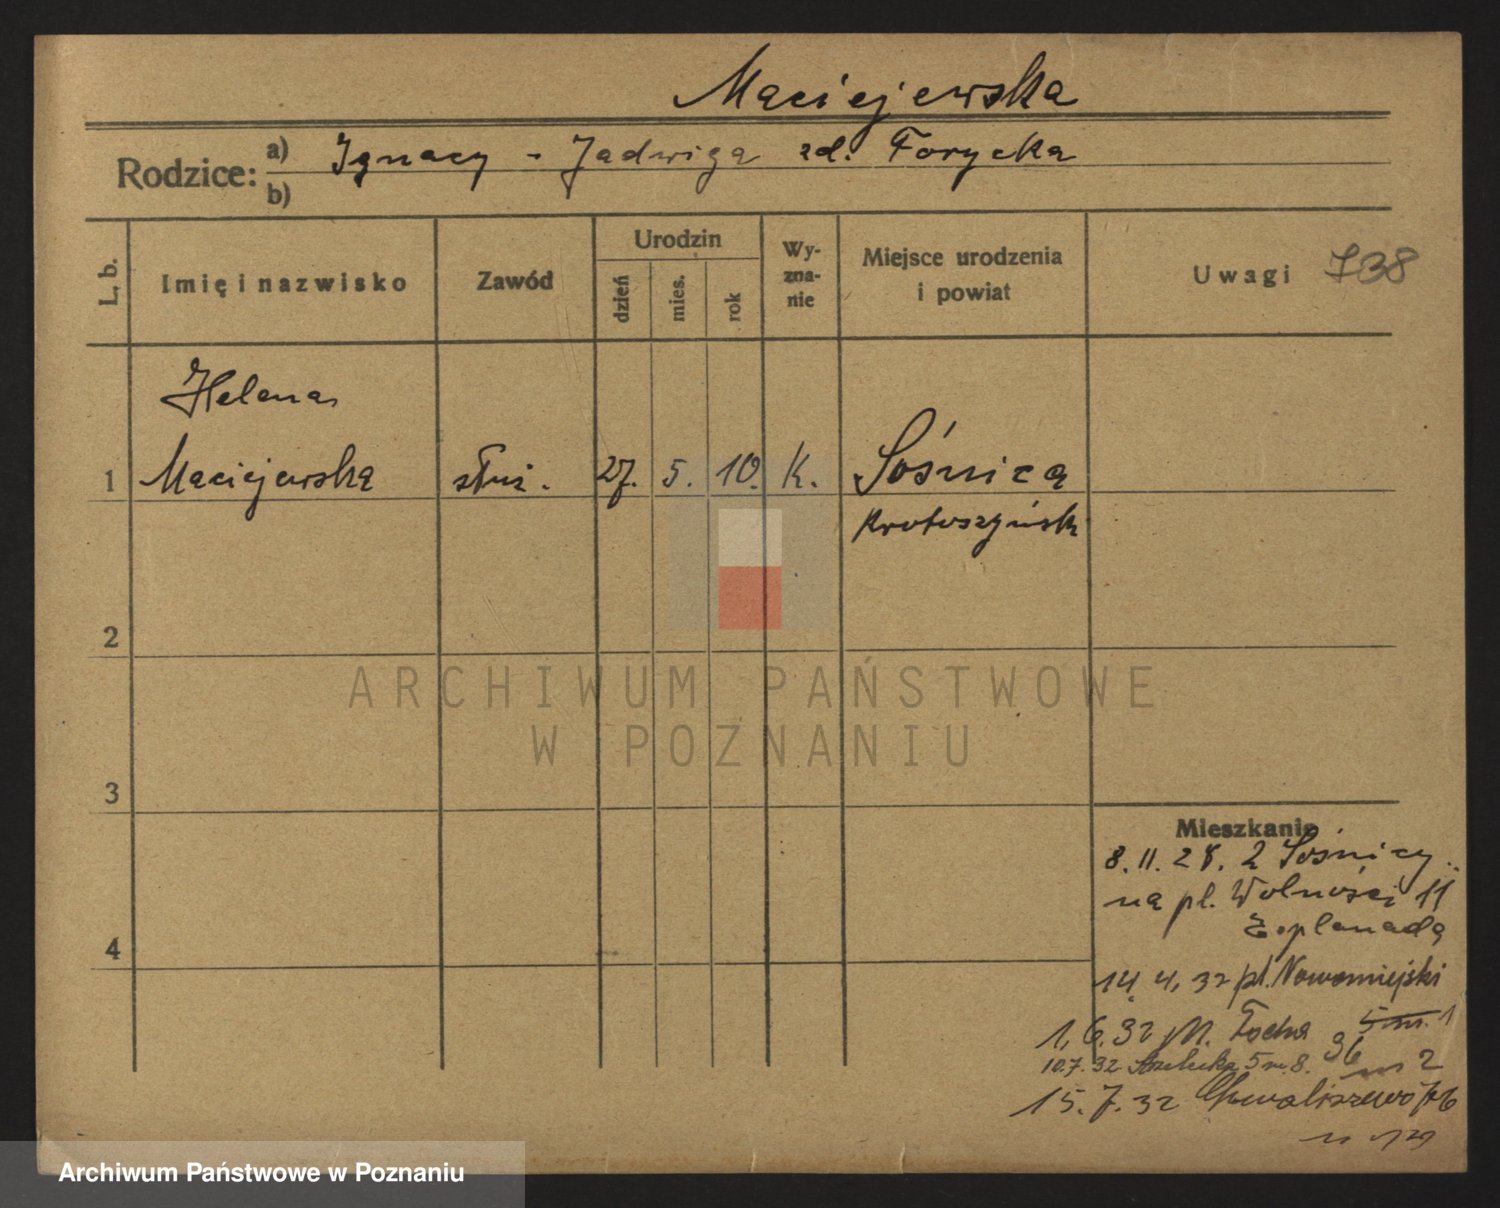 Maciejewska
Rodzice: a) Ignacy - Jadwiga zd. Forycka
b)
L. b.
Imię i nazwisko
Zawód
Urodzin
dzień
mies.
rok
Wy-
zna-
nie
Miejsce urodzenia
i powiat
Uwagi 738
Helena
1 Maciejewska służ. 27. 5. 10. K. Sośnica
Krotoszyńsk
2
3
4
Mieszkanie
8. 11. 28. z Sośnicy
na pl. Wolności 11
Esplanada
14. 4. 32 pl. Nowomiejski
5 m. 1
1. 6. 32 M. Focha 36
m 2
10.7.32 Strzelecka 5 m. 8.
15. 7. 32 Chwaliszewo 76
ARCHIWUM PAŃSTWOWE
W POZNANIU
Archiwum Państwowe w Poznaniu